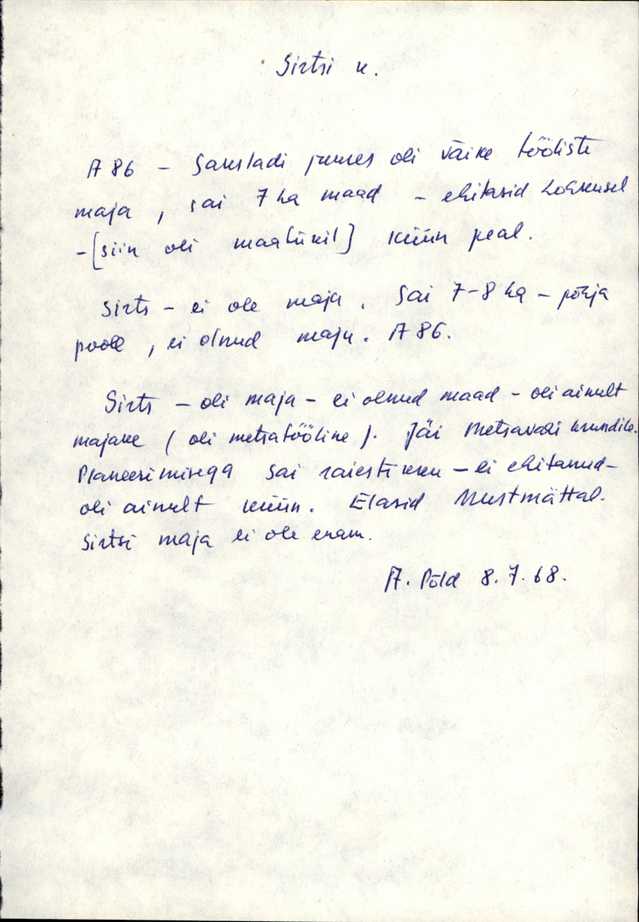 Sirtsi k.
A 86 – Saueladi juures oli väike tööliste
maja, sai 7 ha maad – ehitasid
– [siin oli maatükil] küün peal.
Sirts – ei ole maja. Sai 7-8 ha – põhja
poole, ei olnud maja. A 86.
Sirts – oli maja – ei olnud maad – oli ainult
majake (oli metsatööline). Jäi metsavahi krundile.
Planeerimisega sai raiestikku – ei ehitanud –
oli ainult küün. Elasid Mustmättal.
Sirtsi maja ei ole enam.
A. Põld 8.7.68.